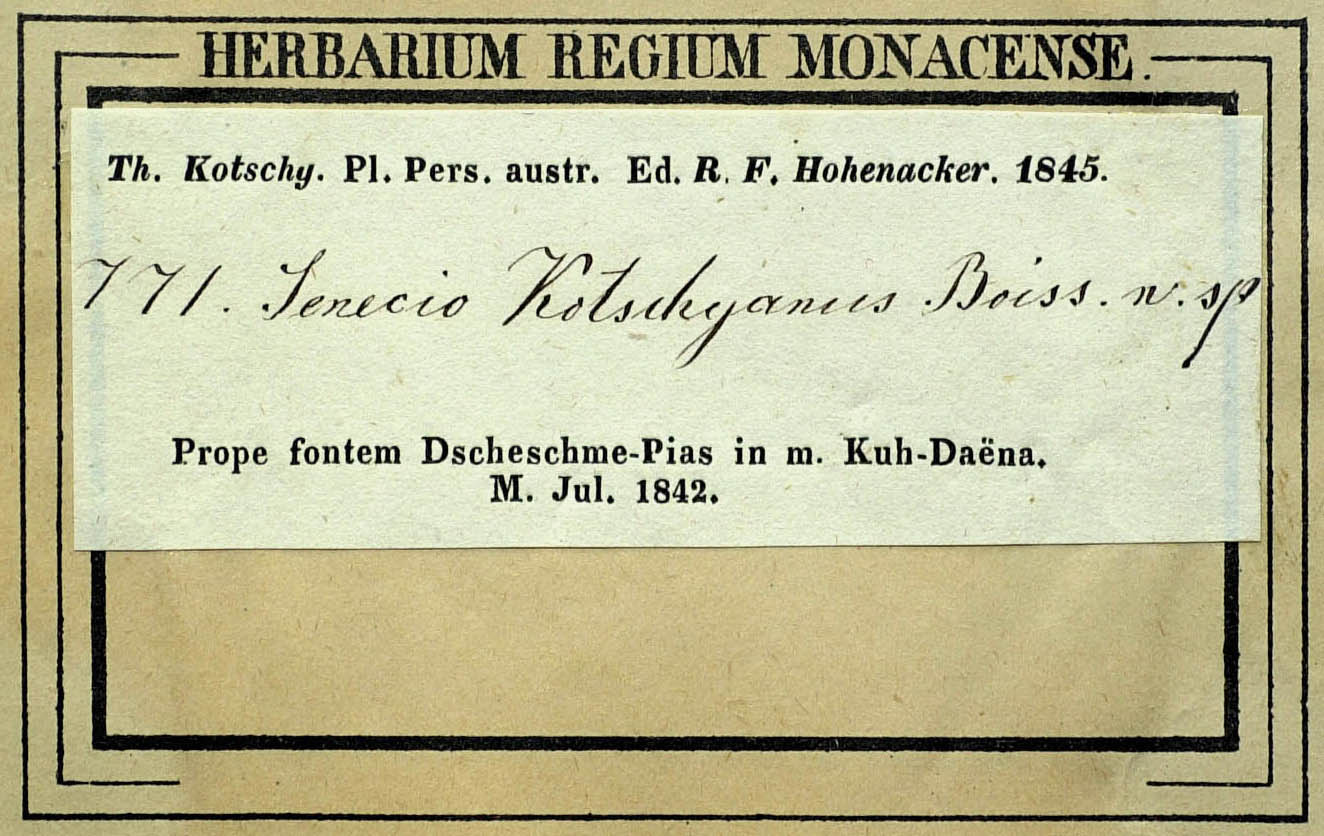 HERBARIUM REGIUM MONACENSE.
Th. Kotschy. Pl. Pers. austr. Ed. R. F. Hohenacker. 1845.
771. Senecio Kotschyanus Boiss. n. sp
Prope fontem Dscheschme-Pias in m. Kuh-Daëna.
M. Jul. 1842.